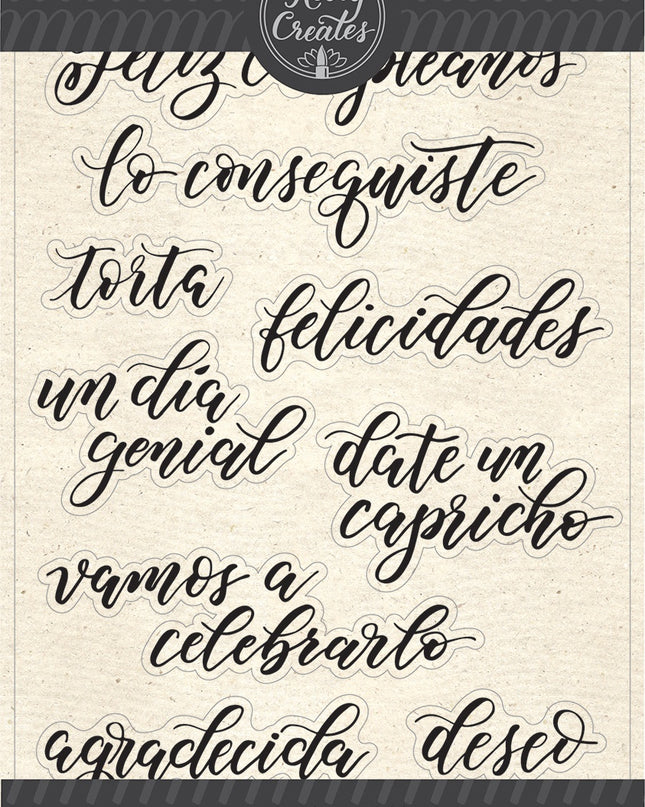 Kelly
Creates
Feliz Cumpleaños
lo conseguiste
torta
felicidades
un día
genial
date un
capricho
vamos a
celebrarlo
agradecida
deseo